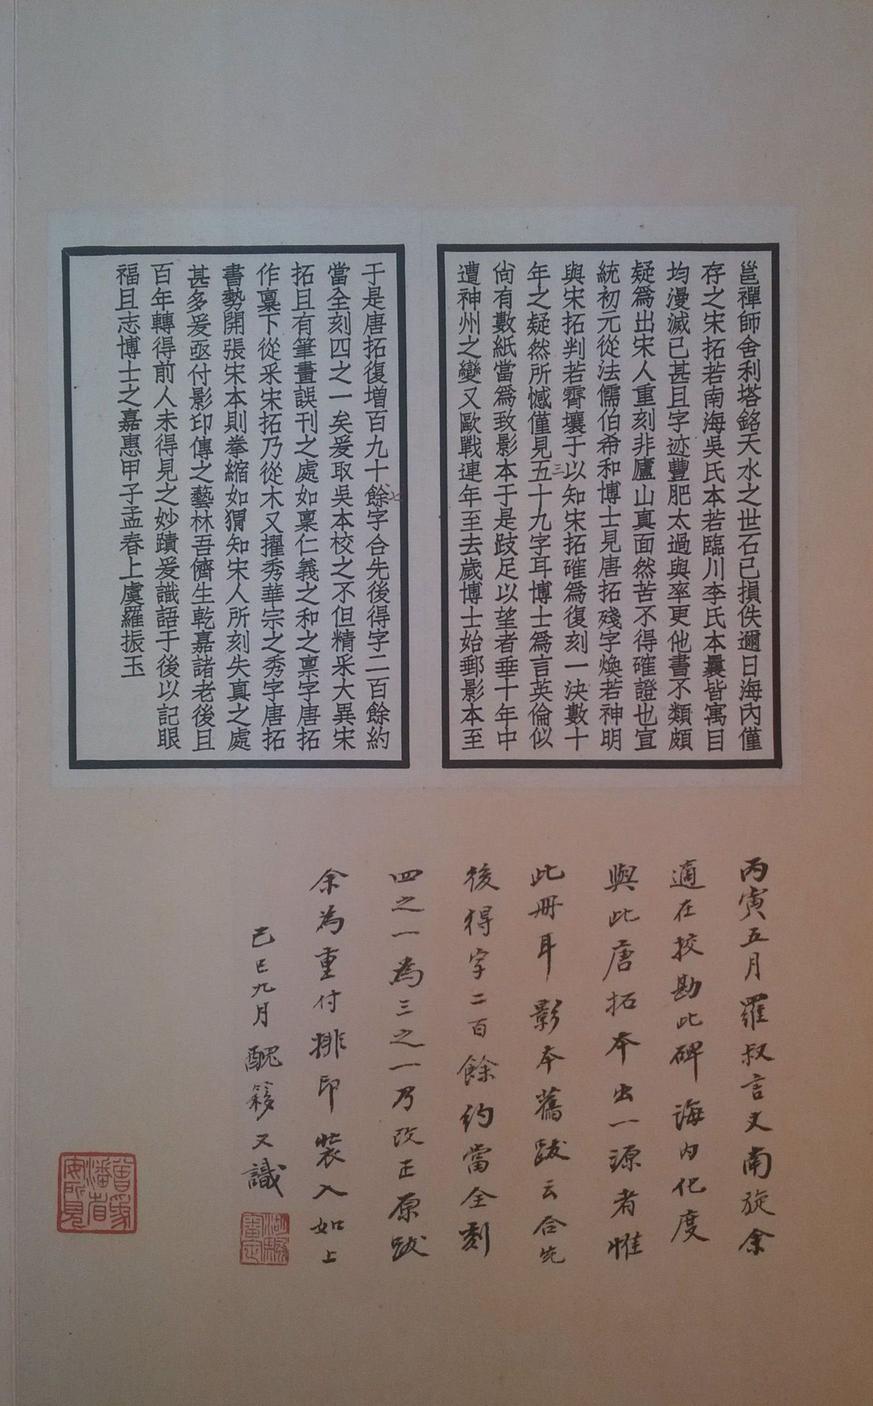 邕禪師舍利塔銘天水之世石已損佚邇日海內僅
存之宋拓若南海吳氏本若臨川李氏本曩皆寓目
均漫滅已甚且字迹豐肥太過與率更他書不類頗
疑為出宋人重刻非廬山真面然苦不得確證也宣
統初元從法儒伯希和博士見唐拓殘字煥若神明
與宋拓判若霄壤于以知宋拓確為復刻一決數十
年之疑然所憾僅見五十九字耳博士為言英倫似
尚有數紙當為致影本于是跂足以望者垂十年中
遭神州之變又歐戰連年至去歲博士始郵影本至
于是唐拓復增百九十餘字合先後得字二百餘約
當全刻四之一矣爰取吳本校之不但精采大異宋
拓且有筆畫誤刊之處如稟仁義之和之稟字唐拓
作稟下從釆宋拓乃從木又擢秀華宗之秀字唐拓
書勢開張宋本則拳縮如猬知宋人所刻失真之處
甚多爰亟付影印傳之藝林吾儕生乾嘉諸老後且
百年轉得前人未得見之妙蹟爰識語于後以記眼
福且志博士之嘉惠甲子孟春上虞羅振玉
丙寅五月羅叔言丈南旋余
適在挍勘此碑海內化度
與此唐拓本出一源者惟
此冊耳影本舊跋云合先
後得字二百餘約當全刻
四之一為三之一乃改正原跋
余為重付排印裝入如上
己巳九月醜簃又識